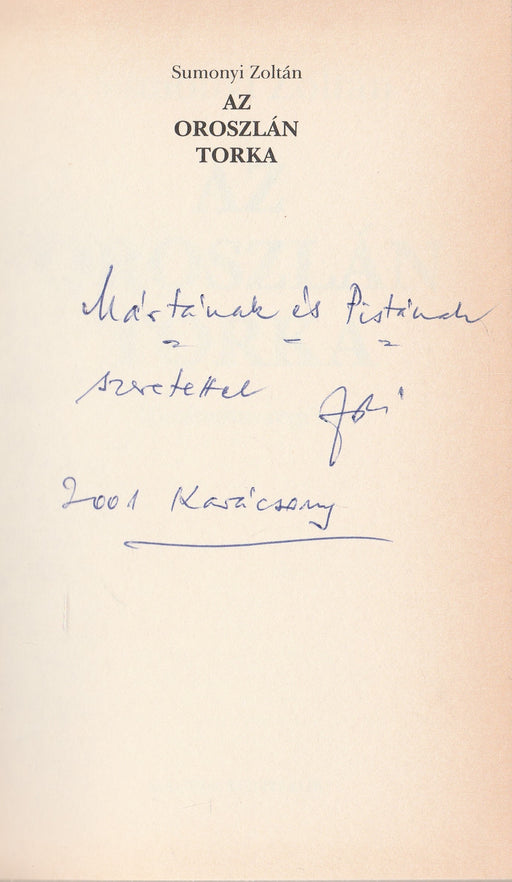 Sumonyi Zoltán
AZ
OROSZLÁN
TORKA
Mártának és Pistának
szeretettel Zoli
2001 Karácsony